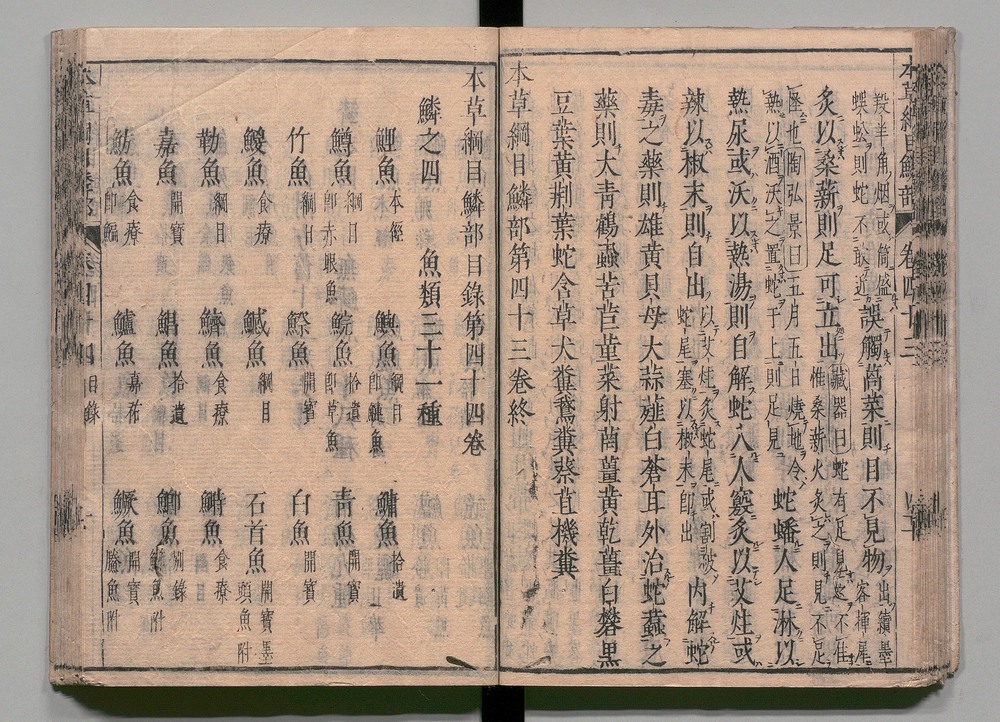 本草綱目鱗部 卷四十三
羖羊角烟或筒盛
蜈蚣則蛇不敢近 誤觸萵菜則目不見物 出續墨
客揮犀
炙以桑薪則足可立出 藏器曰蛇有足見之不佳
惟桑薪火炙之則見不足
怪也陶弘景曰五月五日燒地令
熱以酒沃之置蛇于上則足見 蛇蟠人足淋以
熱尿或沃以熱湯則自解蛇入人竅灸以艾炷或
辣以椒末則自出 以艾炷灸蛇尾或割破
蛇尾塞以椒末即出 内解蛇
毒之藥則雄黃貝母大蒜薤白蒼耳外治蛇蠚之
藥則大青鶴蝨苦苣堇菜射菵薑黃乾薑白礬黒
豆葉黃荆葉蛇含草犬糞鵞糞蔡苴機糞
本草綱目鱗部第四十三卷終
本草綱目鱗部目錄第四十四卷
鱗之四 魚類三十一種
鯉魚 本經 鱮魚 綱目即鰱魚 鱅魚 拾遺
鱒魚 綱目即赤眼魚 鯇魚 拾遺即草魚 青魚 開寶
竹魚 綱目 鯮魚 開寶 白魚 開寶
鯼魚 食療 鰔魚 綱目 石首魚 開寶墨頭魚附
勒魚 綱目 鱭魚 食療 鰣魚 食療
嘉魚 開寶 鯧魚 拾遺 鯽魚 別錄鱊魚附
魴魚 食療即鯿 鱸魚 嘉祐 鱖魚 開寶䲍魚附
本草綱目鱗部 卷四十四 目錄 一